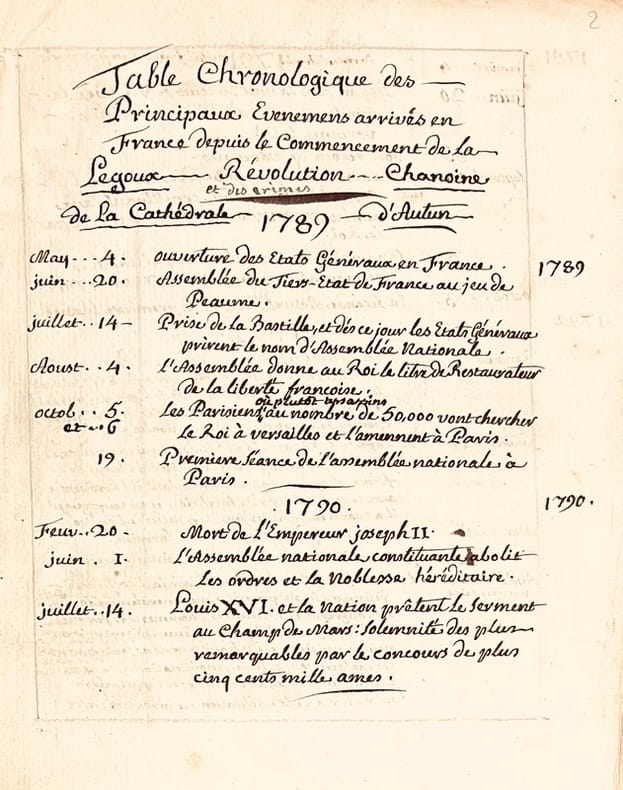 2
Table Chronologique des
Principaux Evenemens arrivés en
France depuis le Commencement de la
Legoux Révolution Chanoine
et des crimes
de La Cathédrale 1789 d'Autun
May . . . 4. ouverture des Etats Généraux en France. 1789
juin . . . 20. Assemblée du Tiers-Etat de France au jeu de
Peaume.
juillet . . 14 - Prise de la Bastille, et dès ce jour les Etats Généraux
prirent le nom d'Assemblée Nationale.
Aoust . . 4. L'Assemblée donne au Roi le titre de Restaurateur
de la liberté françoise.
ou plutôt assassins
octob . . 5. Les Parisiens au nombre de 50,000 vont chercher
et . . 6 Le Roi à versailles et l'amennent à Paris.
19. Premiere séance de l'assemblée nationale à
Paris.
. 1790. 1790.
Feuv . . 20. Mort de L'Empereur joseph II.
juin . 1. L'Assemblée nationale constituante abolit
Les ordres et la Noblesse héréditaire.
juillet . . 14. Louis XVI. et la Nation prêtent le serment
au Champ de Mars: solemnité des plus
remarquables par le concours de plus
cinq cents mille ames.